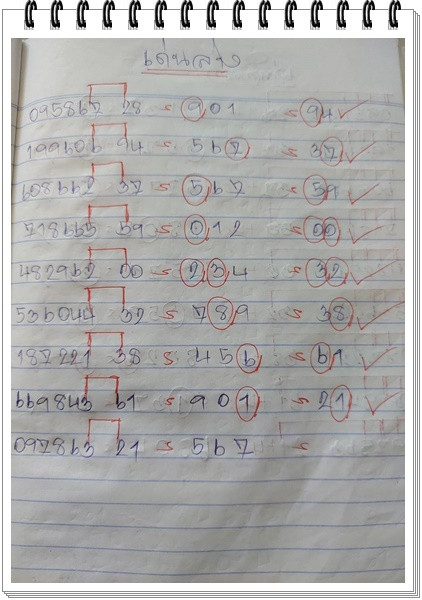 เด่นล่าง
095867 28 = 901 = 94 ✓
199606 94 = 567 = 37 ✓
608662 37 = 567 = 59 ✓
718665 59 = 012 = 00 ✓
482962 00 = 234 = 32 ✓
536044 32 = 789 = 38 ✓
187221 38 = 456 = 61 ✓
669843 61 = 901 = 21 ✓
097863 21 = 567 =